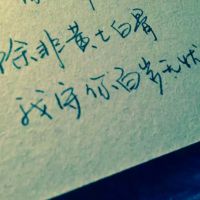 除非黄土白骨
我守你百岁无忧